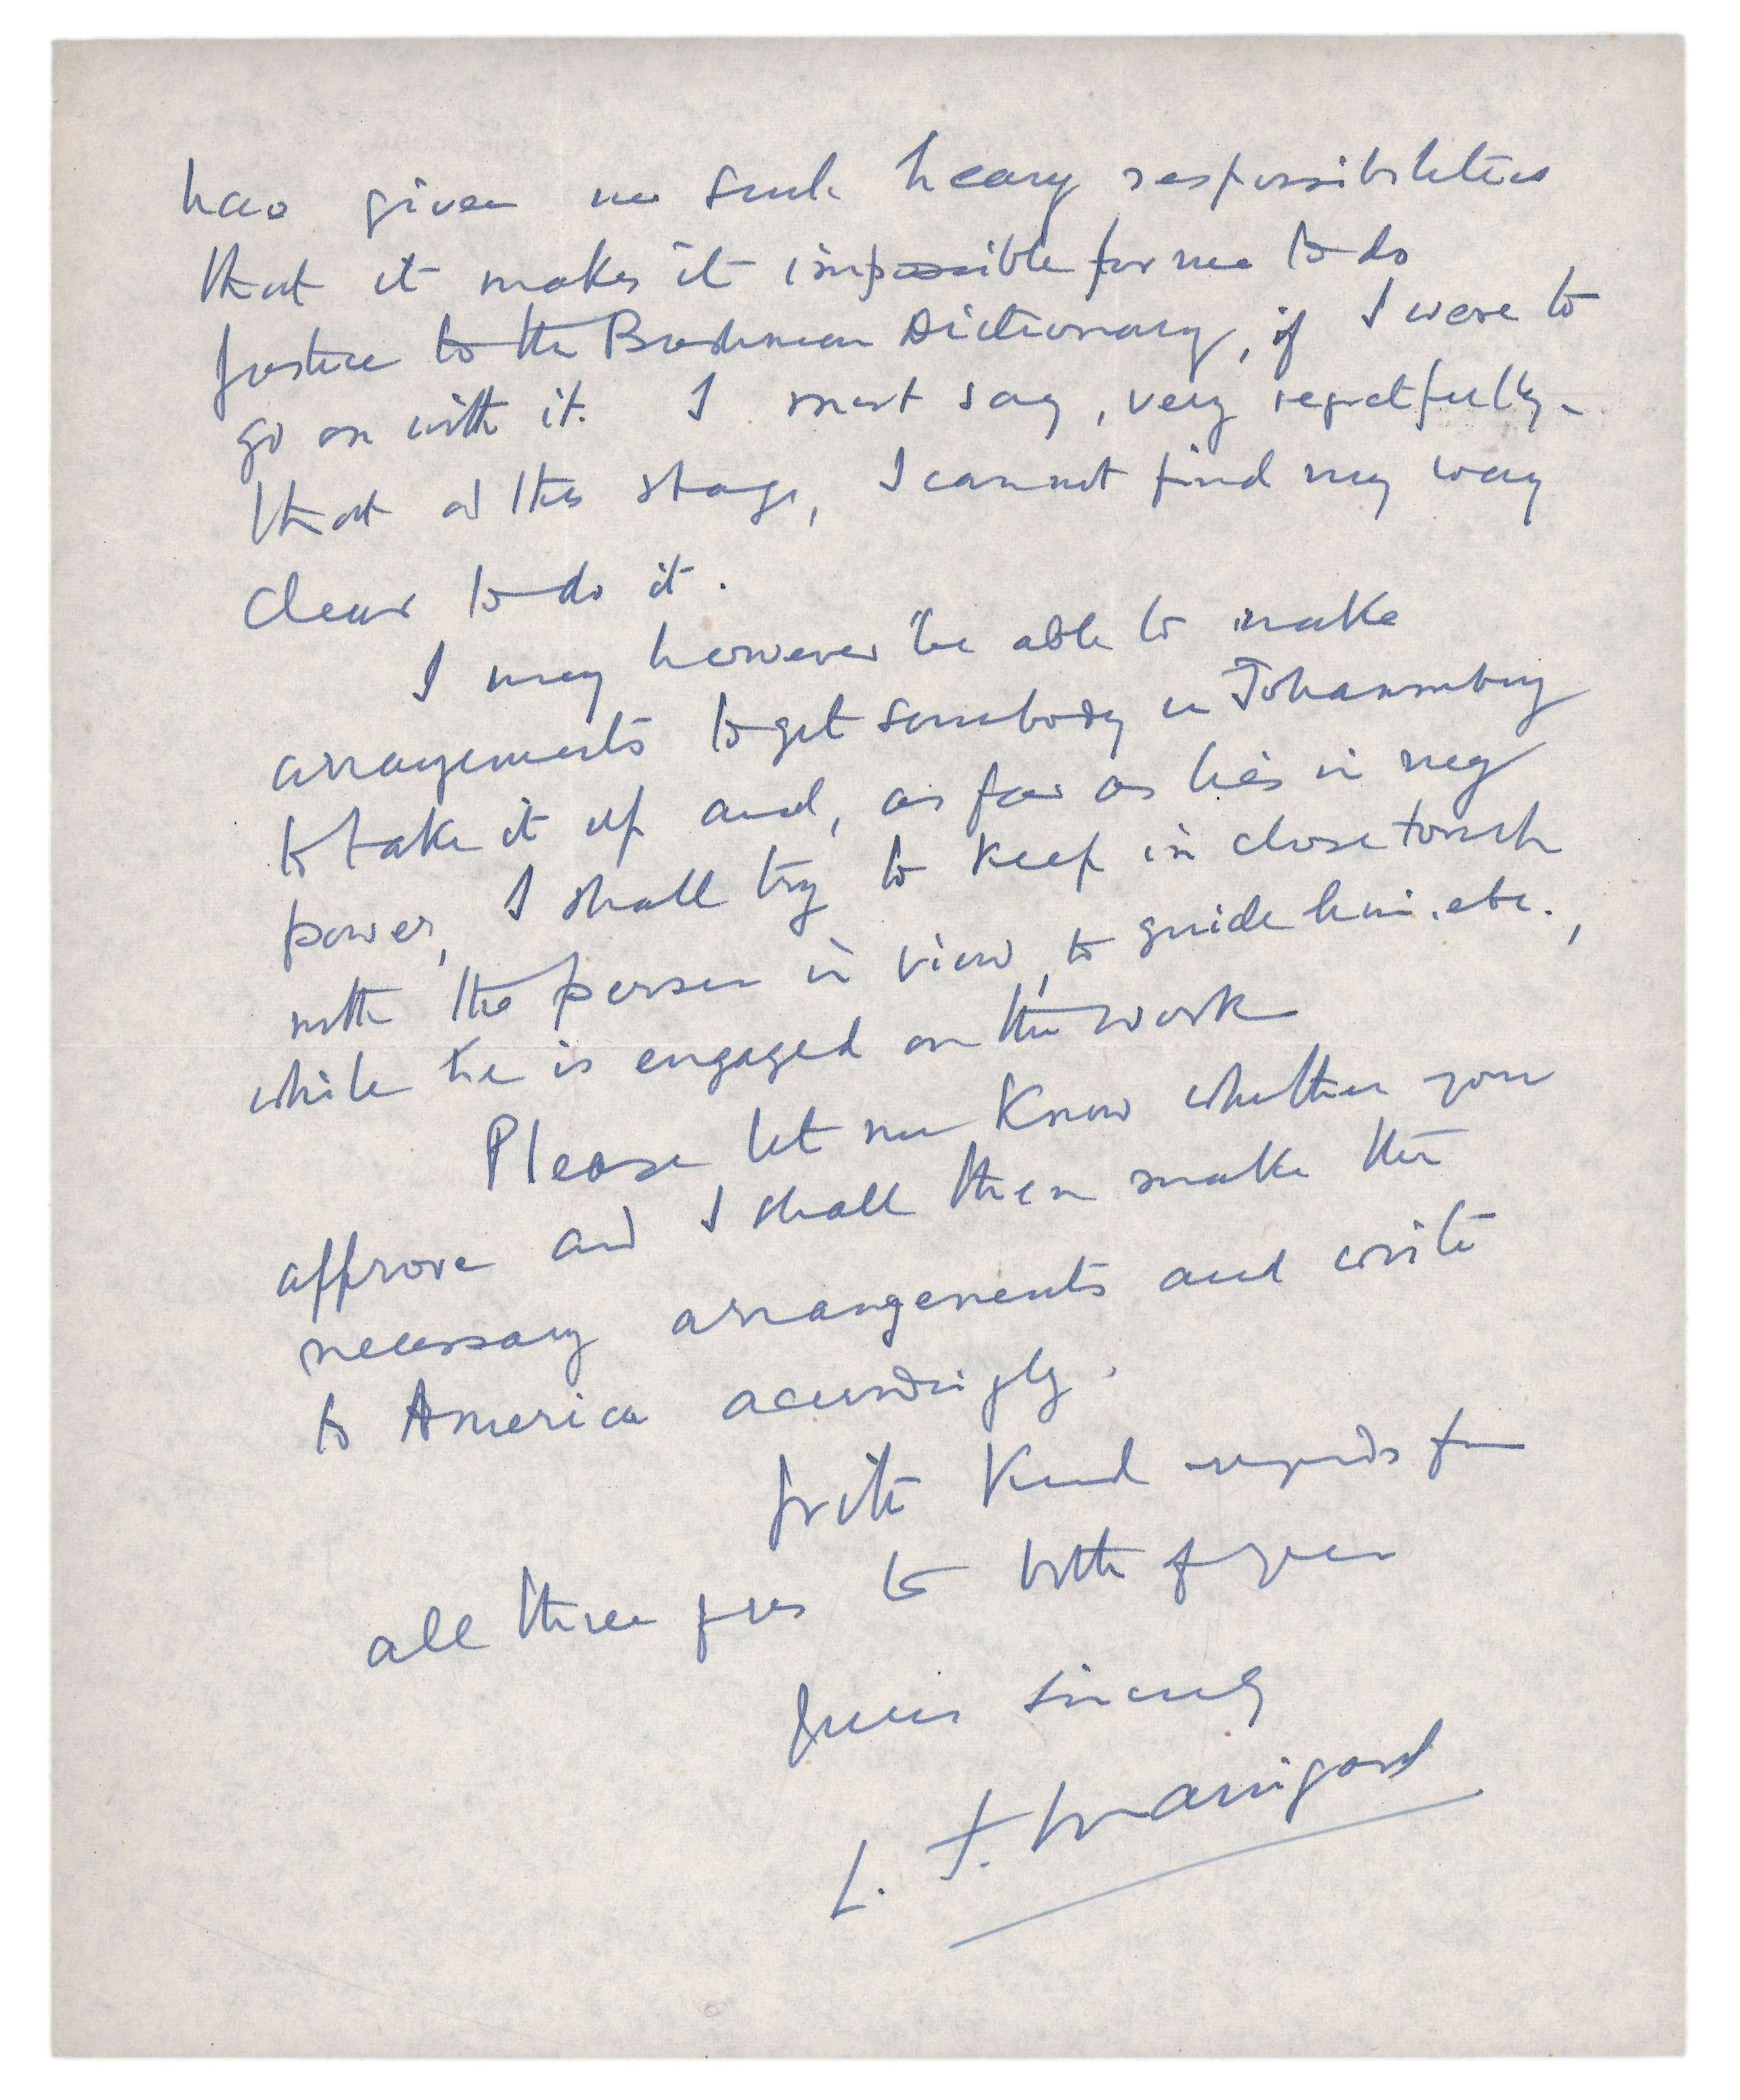 has given me such heavy responsibilities
that it makes it impossible for me to do
justice to the Bushman Dictionary, if I were to
go on with it. I must say, very regretfully
that at this stage, I cannot find my way
clear to do it.
I may however be able to make
arrangements to get somebody in Johannesburg
to take it up and, as far as lies in my
power, I shall try to keep in close touch
with the person in view, to guide him, etc.,
while he is engaged on the work
Please let me know whether you
approve and I shall then make the
necessary arrangements and write
to America accordingly.
With kind regards from
all three of us to both of you
Yours sincerely
L. F. Maingard